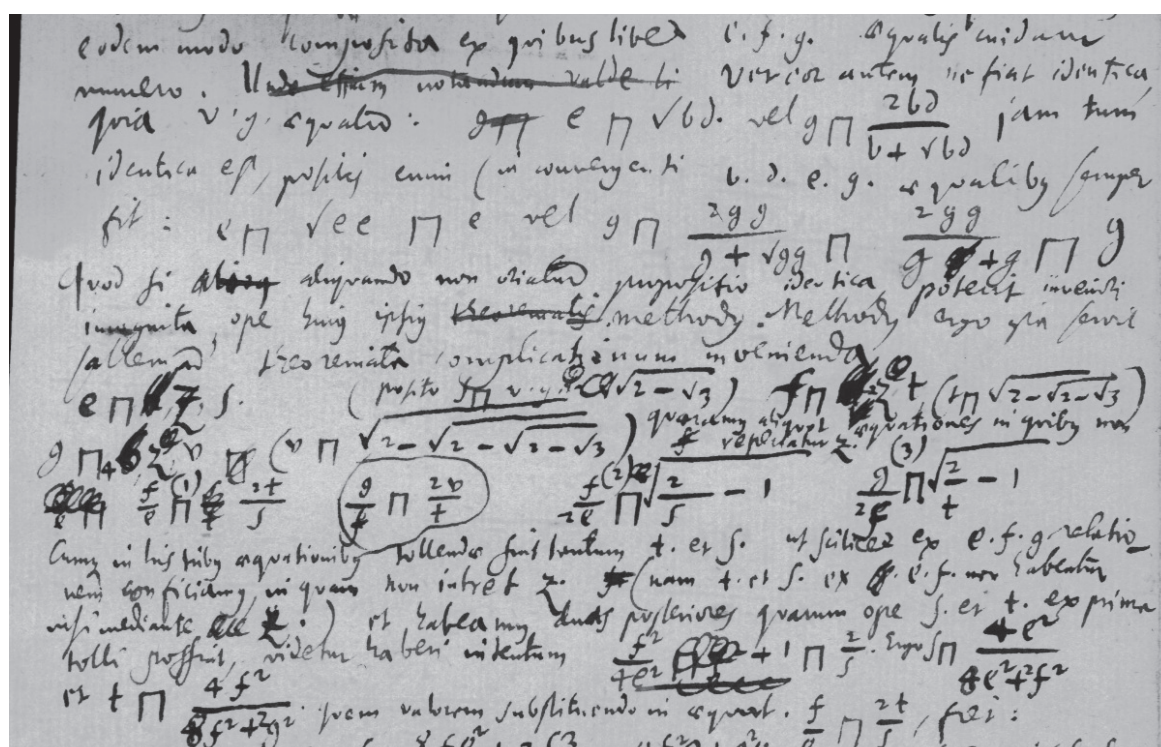 eodem modo composita ex quibuslibet e. f. g. æqualis cuidam
numero. Vereor autem ne fiat identica
quia v. g. æquatio: e ⊓ √bd. vel g ⊓ 2bd / b + √bd jam tum
identica est, positis enim (in convergenti b. d. e. g. æqualibus semper
fit: e ⊓ √ee ⊓ e vel g ⊓ 2gg / g + √gg ⊓ 2gg / g + g ⊓ g
Quod si aliquando non oriatur propositio identica, poterit inveniri
incognita, ope hujus ipsius methodi. Methodus ergo ista servit
saltem ad theoremata complicationum invenienda
e ⊓ z s. (posito s ⊓ v. g. √2-√3) f ⊓ 2z t (t ⊓ √2-√2-√3)
g ⊓ 4 z v (v ⊓ √2-√2-√2-√3) quæramus aliquot æquationes in quibus non
reperiatur z.
f/e (1) ⊓ 2t/s g/f ⊓ 2v/t f/2e (2) ⊓ √2/s - 1 g/2f (3) ⊓ √2/t - 1
Cumque in his tribus æquationibus tollendæ sint tantum t. et s. ut scilicet ex e. f. g relatio-
nem conficiamus, in quam non intret z. (nam t. et s. ex e. f. non habentur
nisi mediante z.) et habeamus duas posteriores quarum ope s. et t. ex prima
tolli possint, videtur haberi intentum f²/4e² + 1 ⊓ 2/s. Ergo s ⊓ 4e² / 4e²+²f²
et t ⊓ 4f² / 8f²+²g² quem valorem substituendo in æquat. f/e ⊓ 2t/s, fiet: